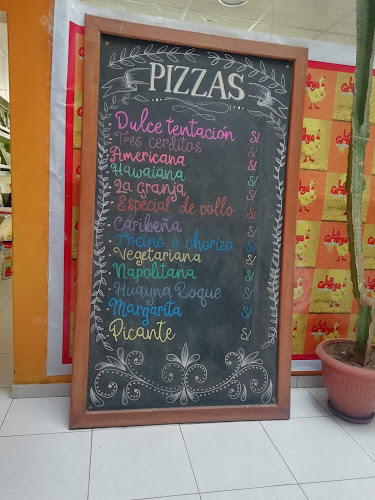 PIZZAS
Dulce tentación S/
Tres cerditos S/
Americana S/
Hawaiana S/
La Granja S/
Especial de pollo S/
Caribeña S/
Tocino o chorizo S/
Vegetariana S/
Napolitana S/
Huayna Roque S/
Margarita S/
Picante S/
La Granja
La Granja
La Granja
La Granja